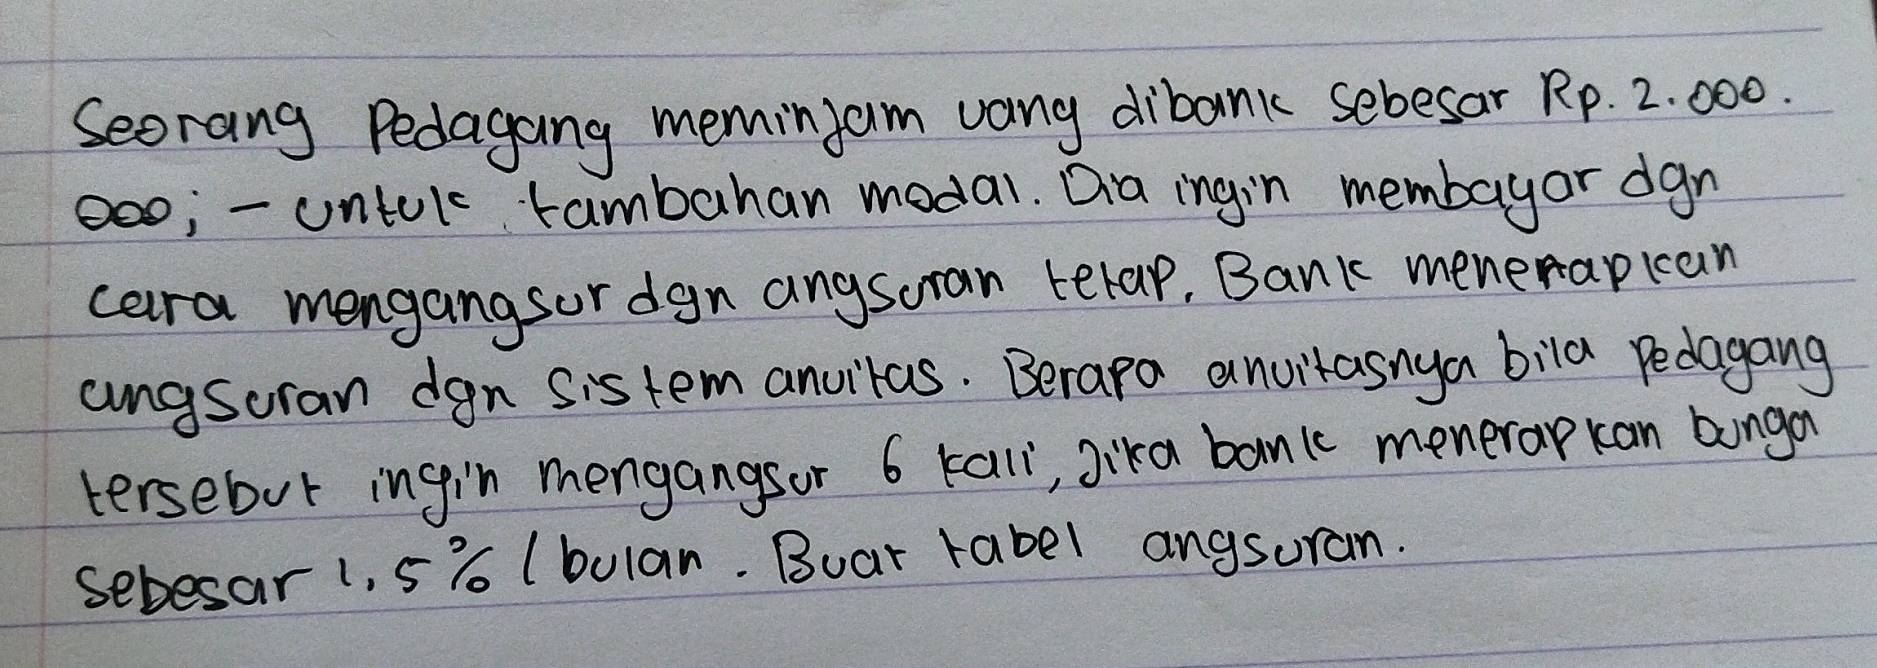 Seorang Pedagang meminjam uang dibank sebesar Rp. 2.000.
000; - untuk tambahan modal. Dia ingin membayar dgn
cara mengangsur dgn angsuran tetap. Bank menerapkan
angsuran dgn sistem anuitas. Berapa anuitasnya bila Pedagang
tersebut ingin mengangsur 6 kali, Jika bank menerapkan bunga
sebesar 1,5% / bulan. Buat tabel angsuran.